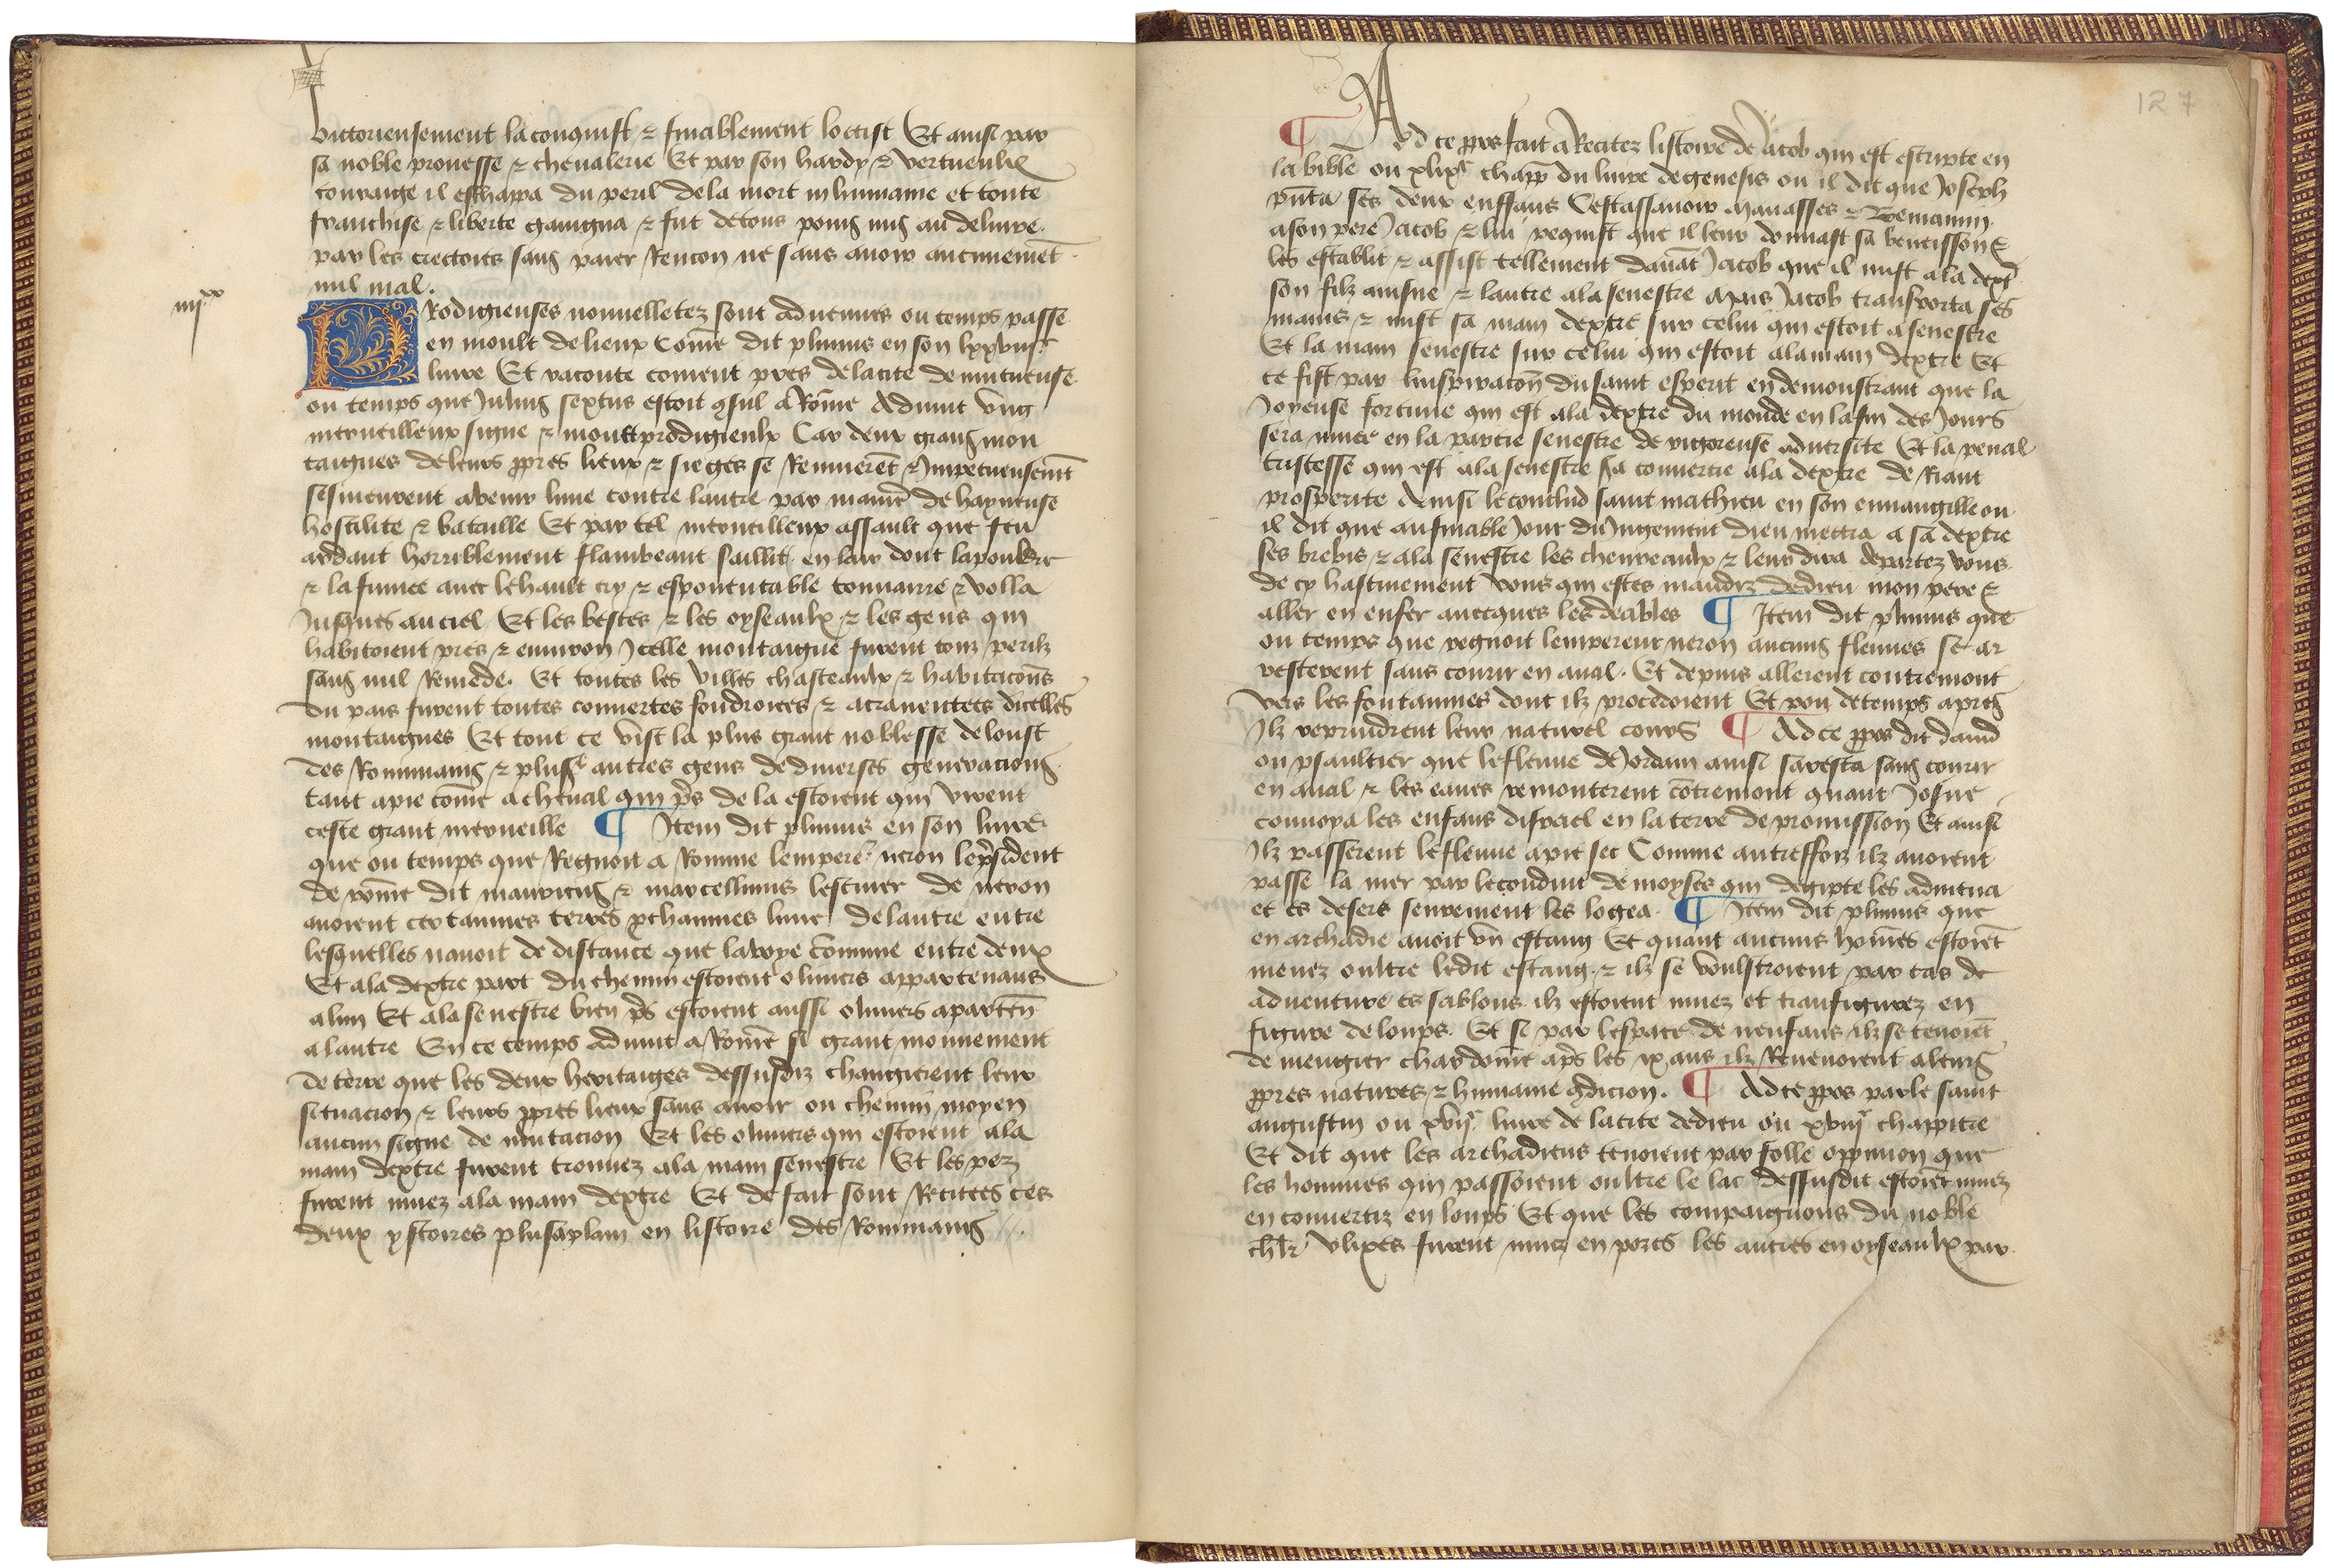 victorieusement la conquist & finablement loccist Et ainsi par
sa noble prouesse & cheualerie Et par son hardy & vertueulx
couraige il eschappa du peril dela mort inhumaine et toute
franchise & liberte gaingna & fut detous poins mis au deliure
par les crectoires sans paier Rencon ne sans auoir aucunemēt
nul mal.
iiijxx
PRodigieuses nouuelletez sont aduenues ou temps passe
en moult delieux Come dit plinius en son lxxviije
liure Et raconte coment pres delacite de mutueuse
ou temps que Julius sextus estoit ꝯsul a Rome Aduint vng
merueilleux signe & moult prodigieulx Car deux grans mon
taignes de leurs ꝓpres lieux & sieges se Remuerēt & Impetueusemēt
sesmeurent a venir lune contre lautre par maniere de hayneuse
hostilite & bataille Et par tel merueilleux assault que feu
ardant horriblement flambeant saillit en lair dont lapouldre
& la fumee auec lehault cry & espouentable tonnarre & volla
Jusques au ciel Et les bestes & les oyseaulx & les gens qui
habitoient pres & enuiron Jcelle montaigne furent touz perilz
sans nul Remede. Et toutes les villes chasteaulx & habitacions
du pais furent toutes couuertes foudroiees & acrauentees dicelles
montaignes Et tout ce vist la plus grant noblesse de loust
des Rommains & pluse autres gens de diuerses generacions
tant apie come a cheual qui pres de la estoient qui virent
ceste grant merueille ¶ Jtem dit plinius en son liure
que ou temps que Regnoit a Romme lempere neron lepresident
de rome dit mauricius & marcellinus lescuier de neron
auoient certaines terres ꝓchaines lune delautre entre
lesquelles nauoit de distance que lavoye comune entre deux
Et ala dextre part du chemin estoient oliuiers appartenans
alun Et ala senestre bien pres estoient aussi oliuiers apartēn
a lautre En ce temps aduint a Rome si grant mouuement
de terre que les deux heritaiges dessusdiz changierent leur
situacion & leurs ꝓpres lieux sans auoir ou chemin moyen
aucun signe de mutacion Et les oliuiers qui estoient ala
main dextre furent trouuez ala main senestre Et les prez
furent muez ala main dextre Et de fait sont Recitees ces
deux ystoires plusaplain en listoire des Rommains
127
¶ Ad ce ꝓpos fait a Recitez listoire de Jacob qui est escripte en
la bible ou xlixe chapp du liure de genesis ou il dit que Joseph
pnta ses deux enffans Cestassauoir manasses & Beniamin
ason pere Jacob & lui requist que il leur donnast sa beneisson &
les establit & assist tellement dauāt Jacob que il mist ala dextre
son filz ainsne & lautre ala senestre Mais Jacob transporta ses
mains & mist sa main dextre sur celui qui estoit a senestre
Et la main senestre sur celui qui estoit alamain dextre Et
ce fist par linspiracon du saint esperit en demonstrant que la
Joyeuse fortune qui est ala dextre du monde en lafin des Jours
sera muee en la partie senestre de rigoreuse aduersite Et la penal
tristesse qui est ala senestre sa conuertie ala dextre de Riant
prosperite Ainsi leconclud saint mathieu en son euuangille ou
il dit que aufinable Jour du Jugement dieu mettra a sa dextre
ses brebis & ala senestre les cheureaulx & leur dira departez vous
de cy hastiuement vous qui estes maudiz dedieu mon pere &
aller en enfer auecques les deables ¶ Jtem dit plinius que
ou temps que regnoit lempereur neron aucuns fleuues se ar
resterent sans courir en aual. Et depuis allerent contremont
vers les fontaines dont ilz procedoient Et pou detemps apres
Jlz reprindrent leur naturel cours ¶ Ad ce ꝓpos dit dauid
ou psaultier que lefleuue de Jordain ainsi saresta sans courir
en aual & les eaues remonterent cōtremont quant Josue
conuoya les enfans disrael en la terre de promission Et ainsi
Jlz passerent lefleuue apie sec Comme autreffoiz ilz auoient
passe la mer par leconduit de moyses qui degipte les admena
et es desers seurement les logea. ¶ Jtem dit plinius que
en archadie auoit vn estang Et quant aucuns homes estoiēt
menez oultre ledit estang & ilz se voulstroient par cas de
aduenture es sablons ilz estoient muez et transfigurez en
figure de loups. Et se par lespace de neuf ans ilz se tenoiēt
de mengier char dome apres les ix ans ilz Reuenoient aleurs
ꝓpres natures & humaine ꝯdicion. ¶ Ad ce ꝓpos parle saint
augustin ou xviije liure de lacite dedieu ou xviije chappitre
Et dit que les archadiens tenoient par folle oppinion que
les hommes qui passoient oultre le lac dessusdit estoiēt muez
en conuertiz en loups Et que les compaignons du noble
chlr vlixes furent muez en porcs les autres en oyseaulx par